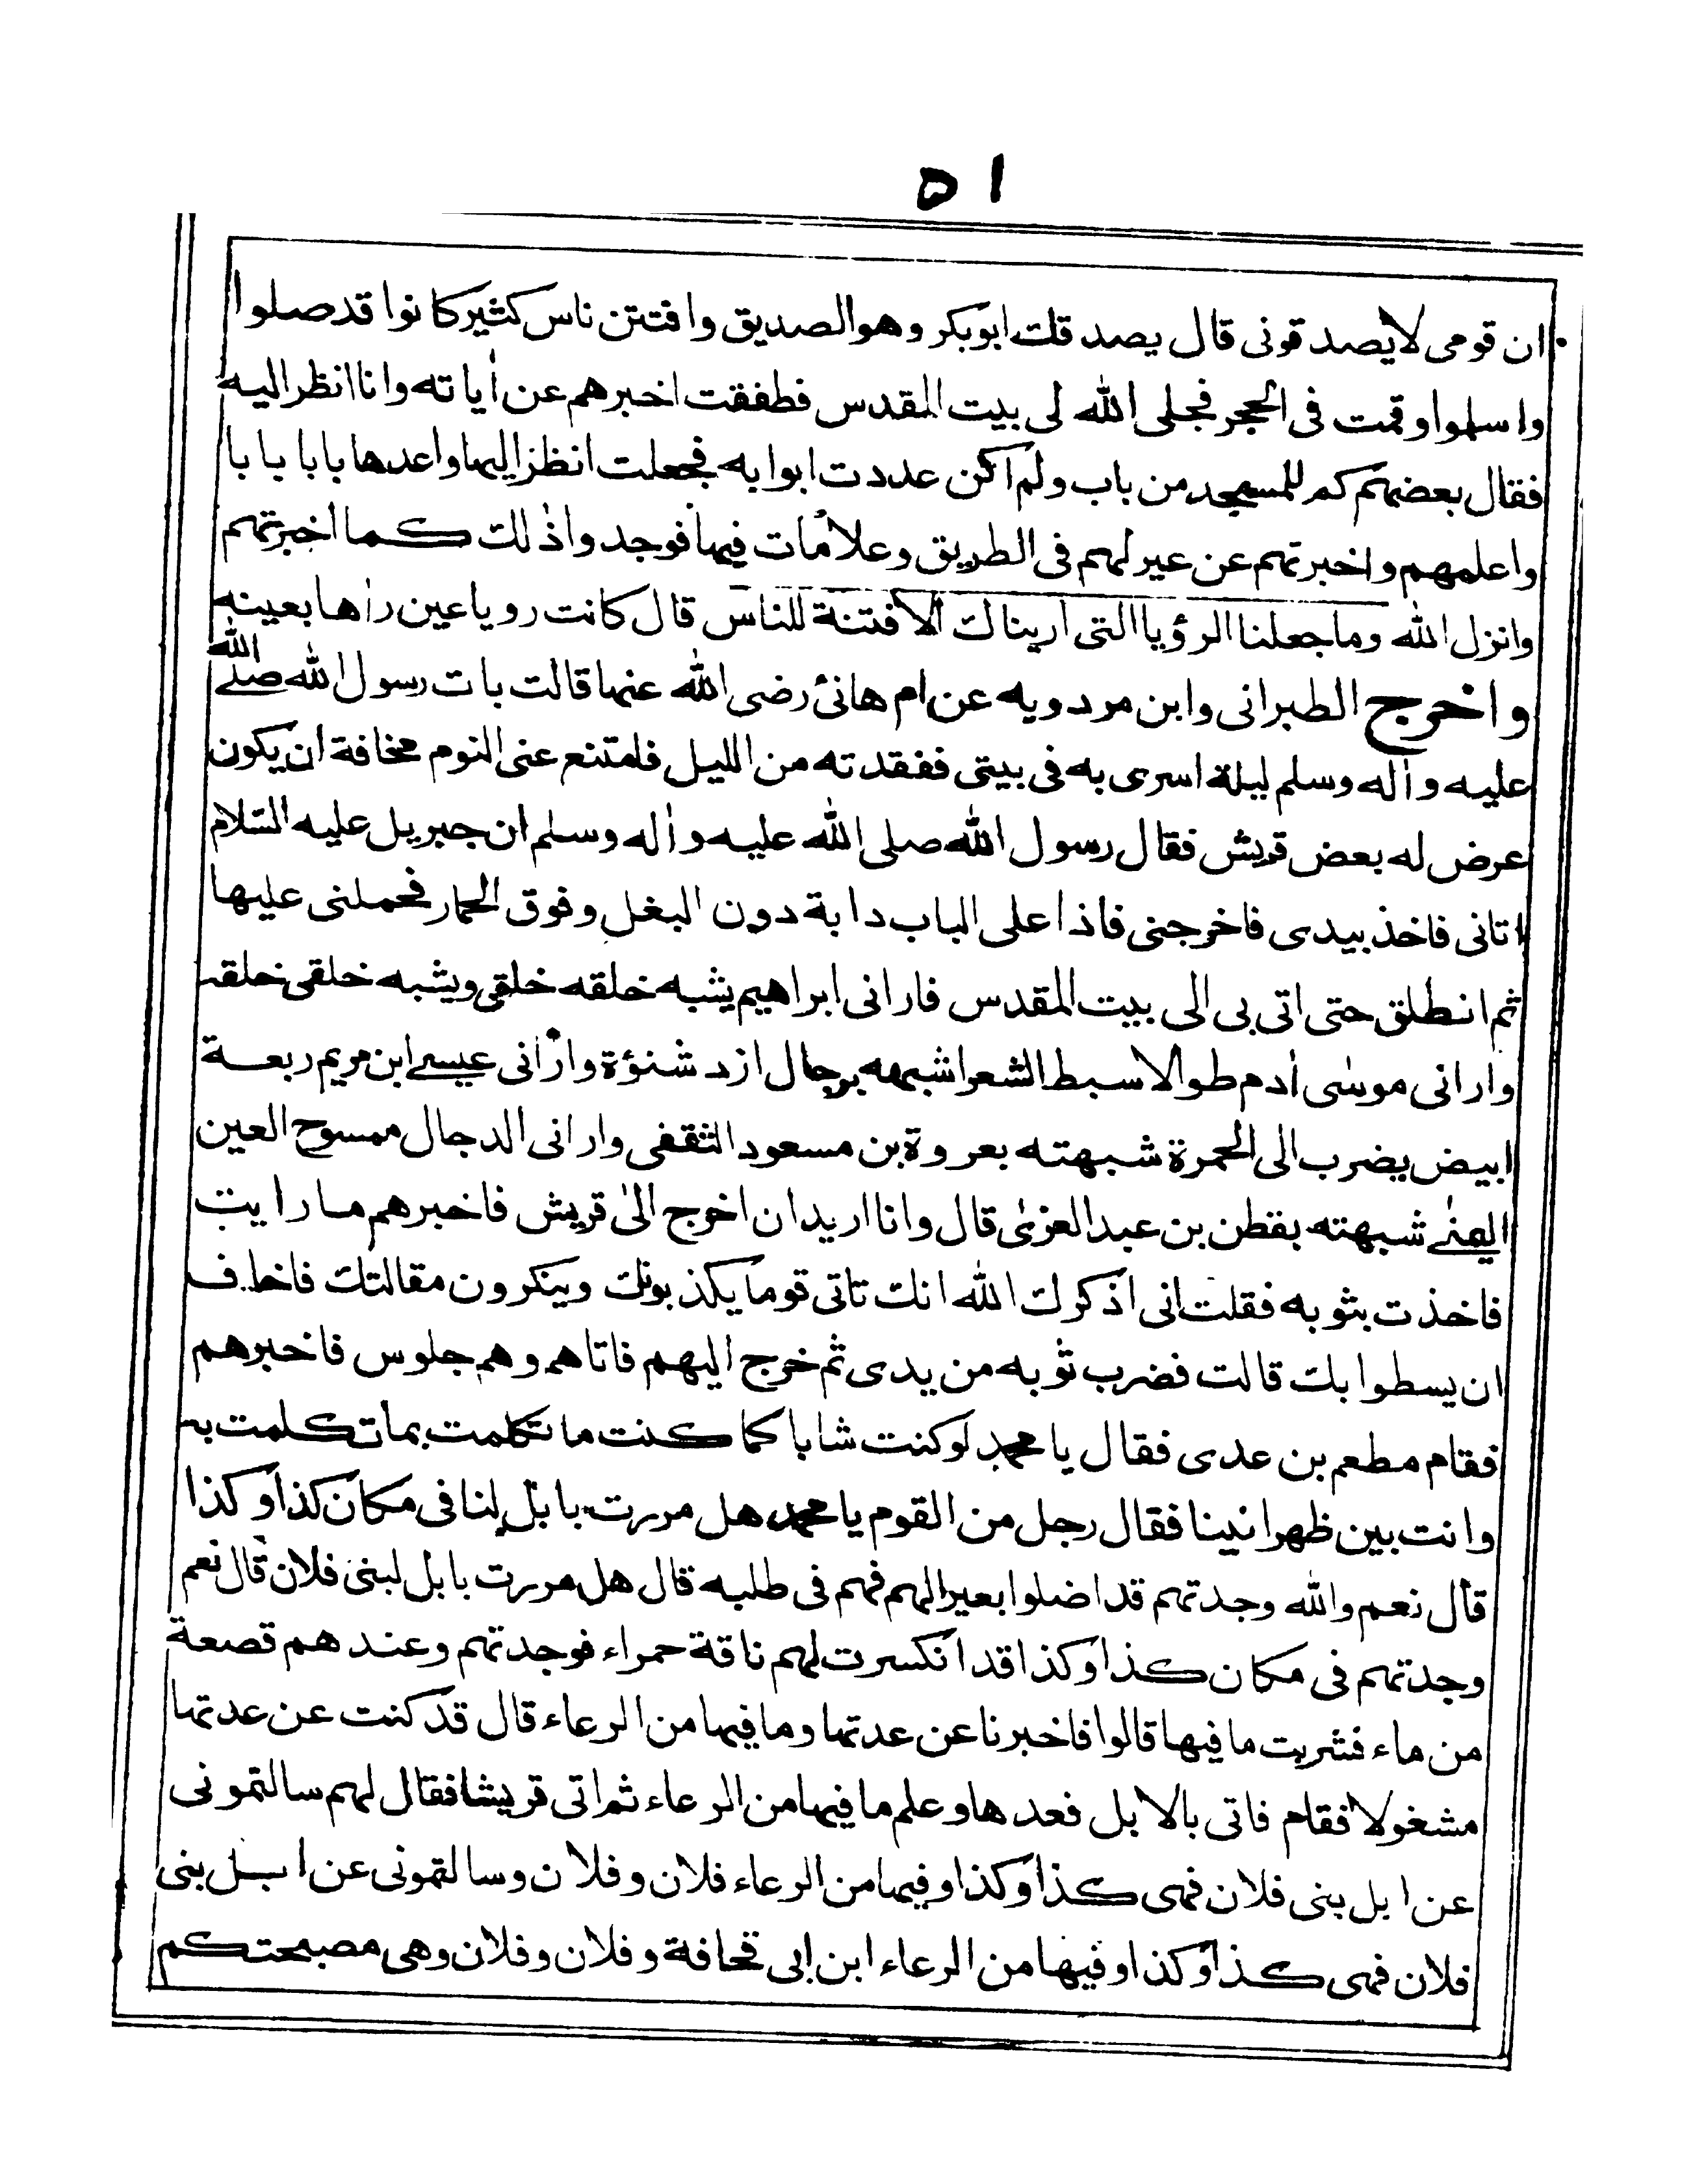 ٥١
ان قومى لا يصدقونى قال يصدقك ابوبكر وهو الصديق وافتتن ناس كثير كانوا قد صلوا
واسلموا وقمت فى الحجر فجلى الله لى بيت المقدس فطفقت اخبرهم عن أياته وانا انظر اليه
فقال بعضهم كم للمسجد من باب ولم اكن عددت ابوابه فجعلت انظر اليها واعدها بابا بابا
واعلمهم واخبرتهم عن عير لهم فى الطريق وعلامات فيها فوجدوا ذلك كما اخبرتهم
وانزل الله وما جعلنا الرؤيا التى اريناك الا فتنة للناس قال كانت رويا عين رأها بعينه
واخرج الطبرانى وابن مردويه عن ام هانئ رضى الله عنها قالت بات رسول الله صلے الله
عليه وأله وسلم ليلة اسرى به فى بيتى ففقدته من الليل فامتنع عنى النوم مخافة ان يكون
عرض له بعض قريش فقال رسول الله صلى الله عليه وأله وسلم ان جبريل عليه السلام
اتانى فاخذ بيدى فاخرجنى فاذا على الباب دابة دون البغل وفوق الحمار فحملنى عليها
ثم انطلق حتى اتى بى الى بيت المقدس فارانى ابراهيم يشبه خلقه خلقى ويشبه خلقى خلقه
وارانى موسى أدم طوالا سبط الشعر اشبهه برجال ازد شنؤة وارانى عيسے ابن مريم ربعة
ابيض يضرب الى الحمرة شبهته بعروة بن مسعود الثقفى وارانى الدجال ممسوح العين
اليمنے شبهته بقطن بن عبد العزى قال وانا اريد ان اخرج الى قريش فاخبرهم ما رايت
فاخذت بثوبه فقلت انى اذكرك الله انك تاتى قوما يكذبونك وينكرون مقالتك فاخاف
ان يسطوا بك قالت فضرب ثوبه من يدى ثم خرج اليهم فاتاهم وهم جلوس فاخبرهم
فقام مطعم بن عدى فقال يا محمد لو كنت شابا كما كنت ما تكلمت بما تكلمت به
وانت بين ظهرانينا فقال رجل من القوم يا محمد هل مررت بابل لنا فى مكان كذا وكذا
قال نعم والله وجدتهم قد اضلوا بعيرا لهم فهم فى طلبه قال هل مررت بابل لبنى فلان قال نعم
وجدتهم فى مكان كذا وكذا قد انكسرت لهم ناقة حمراء فوجدتهم وعندهم قصعة
من ماء فشربت ما فيها قالوا فاخبرنا عن عدتها وما فيها من الرعاء قال قد كنت عن عدتها
مشغولا فقام فاتى بالابل فعدها وعلم ما فيها من الرعاء ثم اتى قريشا فقال لهم سالتمونى
عن ابل بنى فلان فهى كذا وكذا وفيها من الرعاء فلان وفلان وسالتمونى عن ابل بنى
فلان فهى كذا وكذا وفيها من الرعاء ابن ابى قحافة وفلان وفلان وهى مصبحتكم